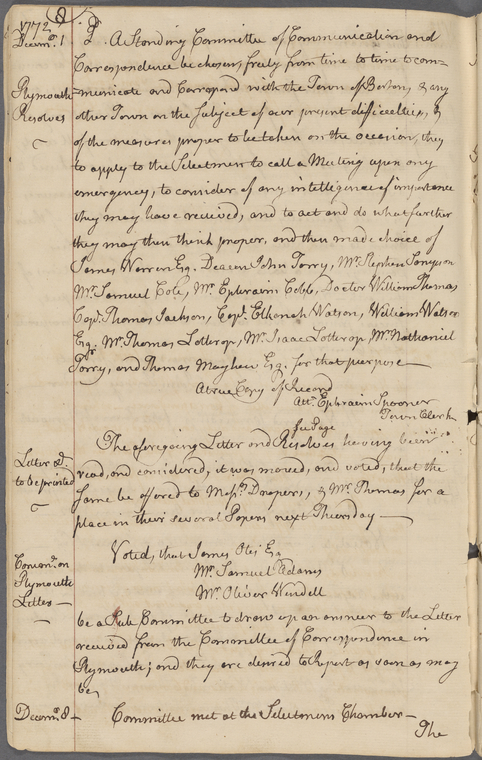 1772
Decem.r 1
2. A Standing Committee of Communication and
Correspondence be chosen, freely from time to time to com-
Plymouth
Resolves
-municate and Correspond with the Town of Boston, & any
other Town on the Subject of our present difficulties, &
of the measures proper to be taken on the occasion, they
to apply to the Selectmen to call a Meeting upon any
emergency, to consider of any intelligence of importance
they may have received, and to act and do what further
they may then think proper, and then made choice of
James Warren Esq. Deacon John Torry, Mr. Stephen Sampson
Mr. Samuel Cole, Mr. Ephraim Cobb, Doctor William Thomas
Capt. Thomas Jackson, Capt. Elkanah Watson, William Watson
Esqr. Mr. Thomas Lothrop, Mr. Isaac Lothrop, Mr. Nathaniel
Torry, and Thomas Mayhew Esq. for that purpose —
A true Copy of Record
Att. Ephraim Spooner
Town Clerk
see Page
Letter &c.
to be printed
The aforegoing Letter and Resolves having been
read, and considered, it was moved, and voted, that the
same be offered to Mess.rs Drapers, & Mr. Thomas for a
place in their several Papers next Thursday —
Comm.e on
Plymouth
Letter —
Voted, that James Otis Esq.
Mr. Samuel Adams
Mr. Oliver Wendell
be a Sub Committee to draw up an answer to the Letter
received from the Committee of Correspondence in
Plymouth; and they are desired to Report as soon as may
be,
Decem.r 8 — Committee met at the Selectmens Chamber —
The